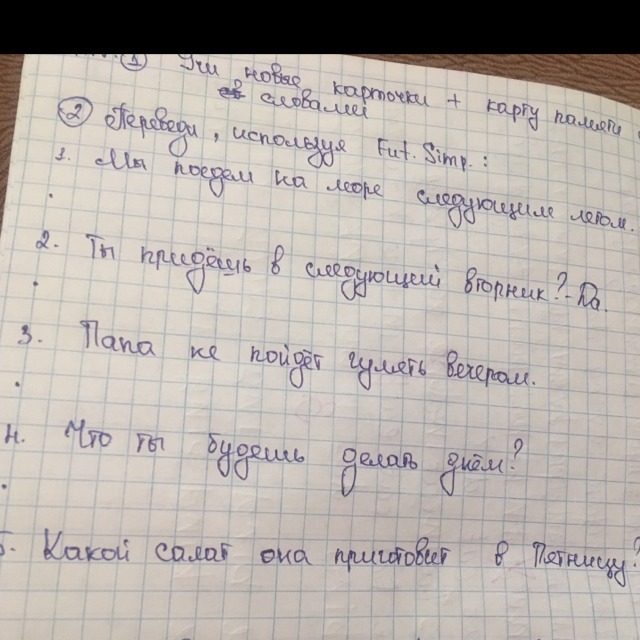 ① Учи новые карточки + карту памяти
словами
② Переведи, используя Fut. Simp.:
1. Мы поедем на море следующим летом.
2. Ты придёшь в следующий вторник? - Да.
3. Папа не пойдёт гулять вечером.
4. Что ты будешь делать днём?
5. Какой салат она приготовит в Пятницу?